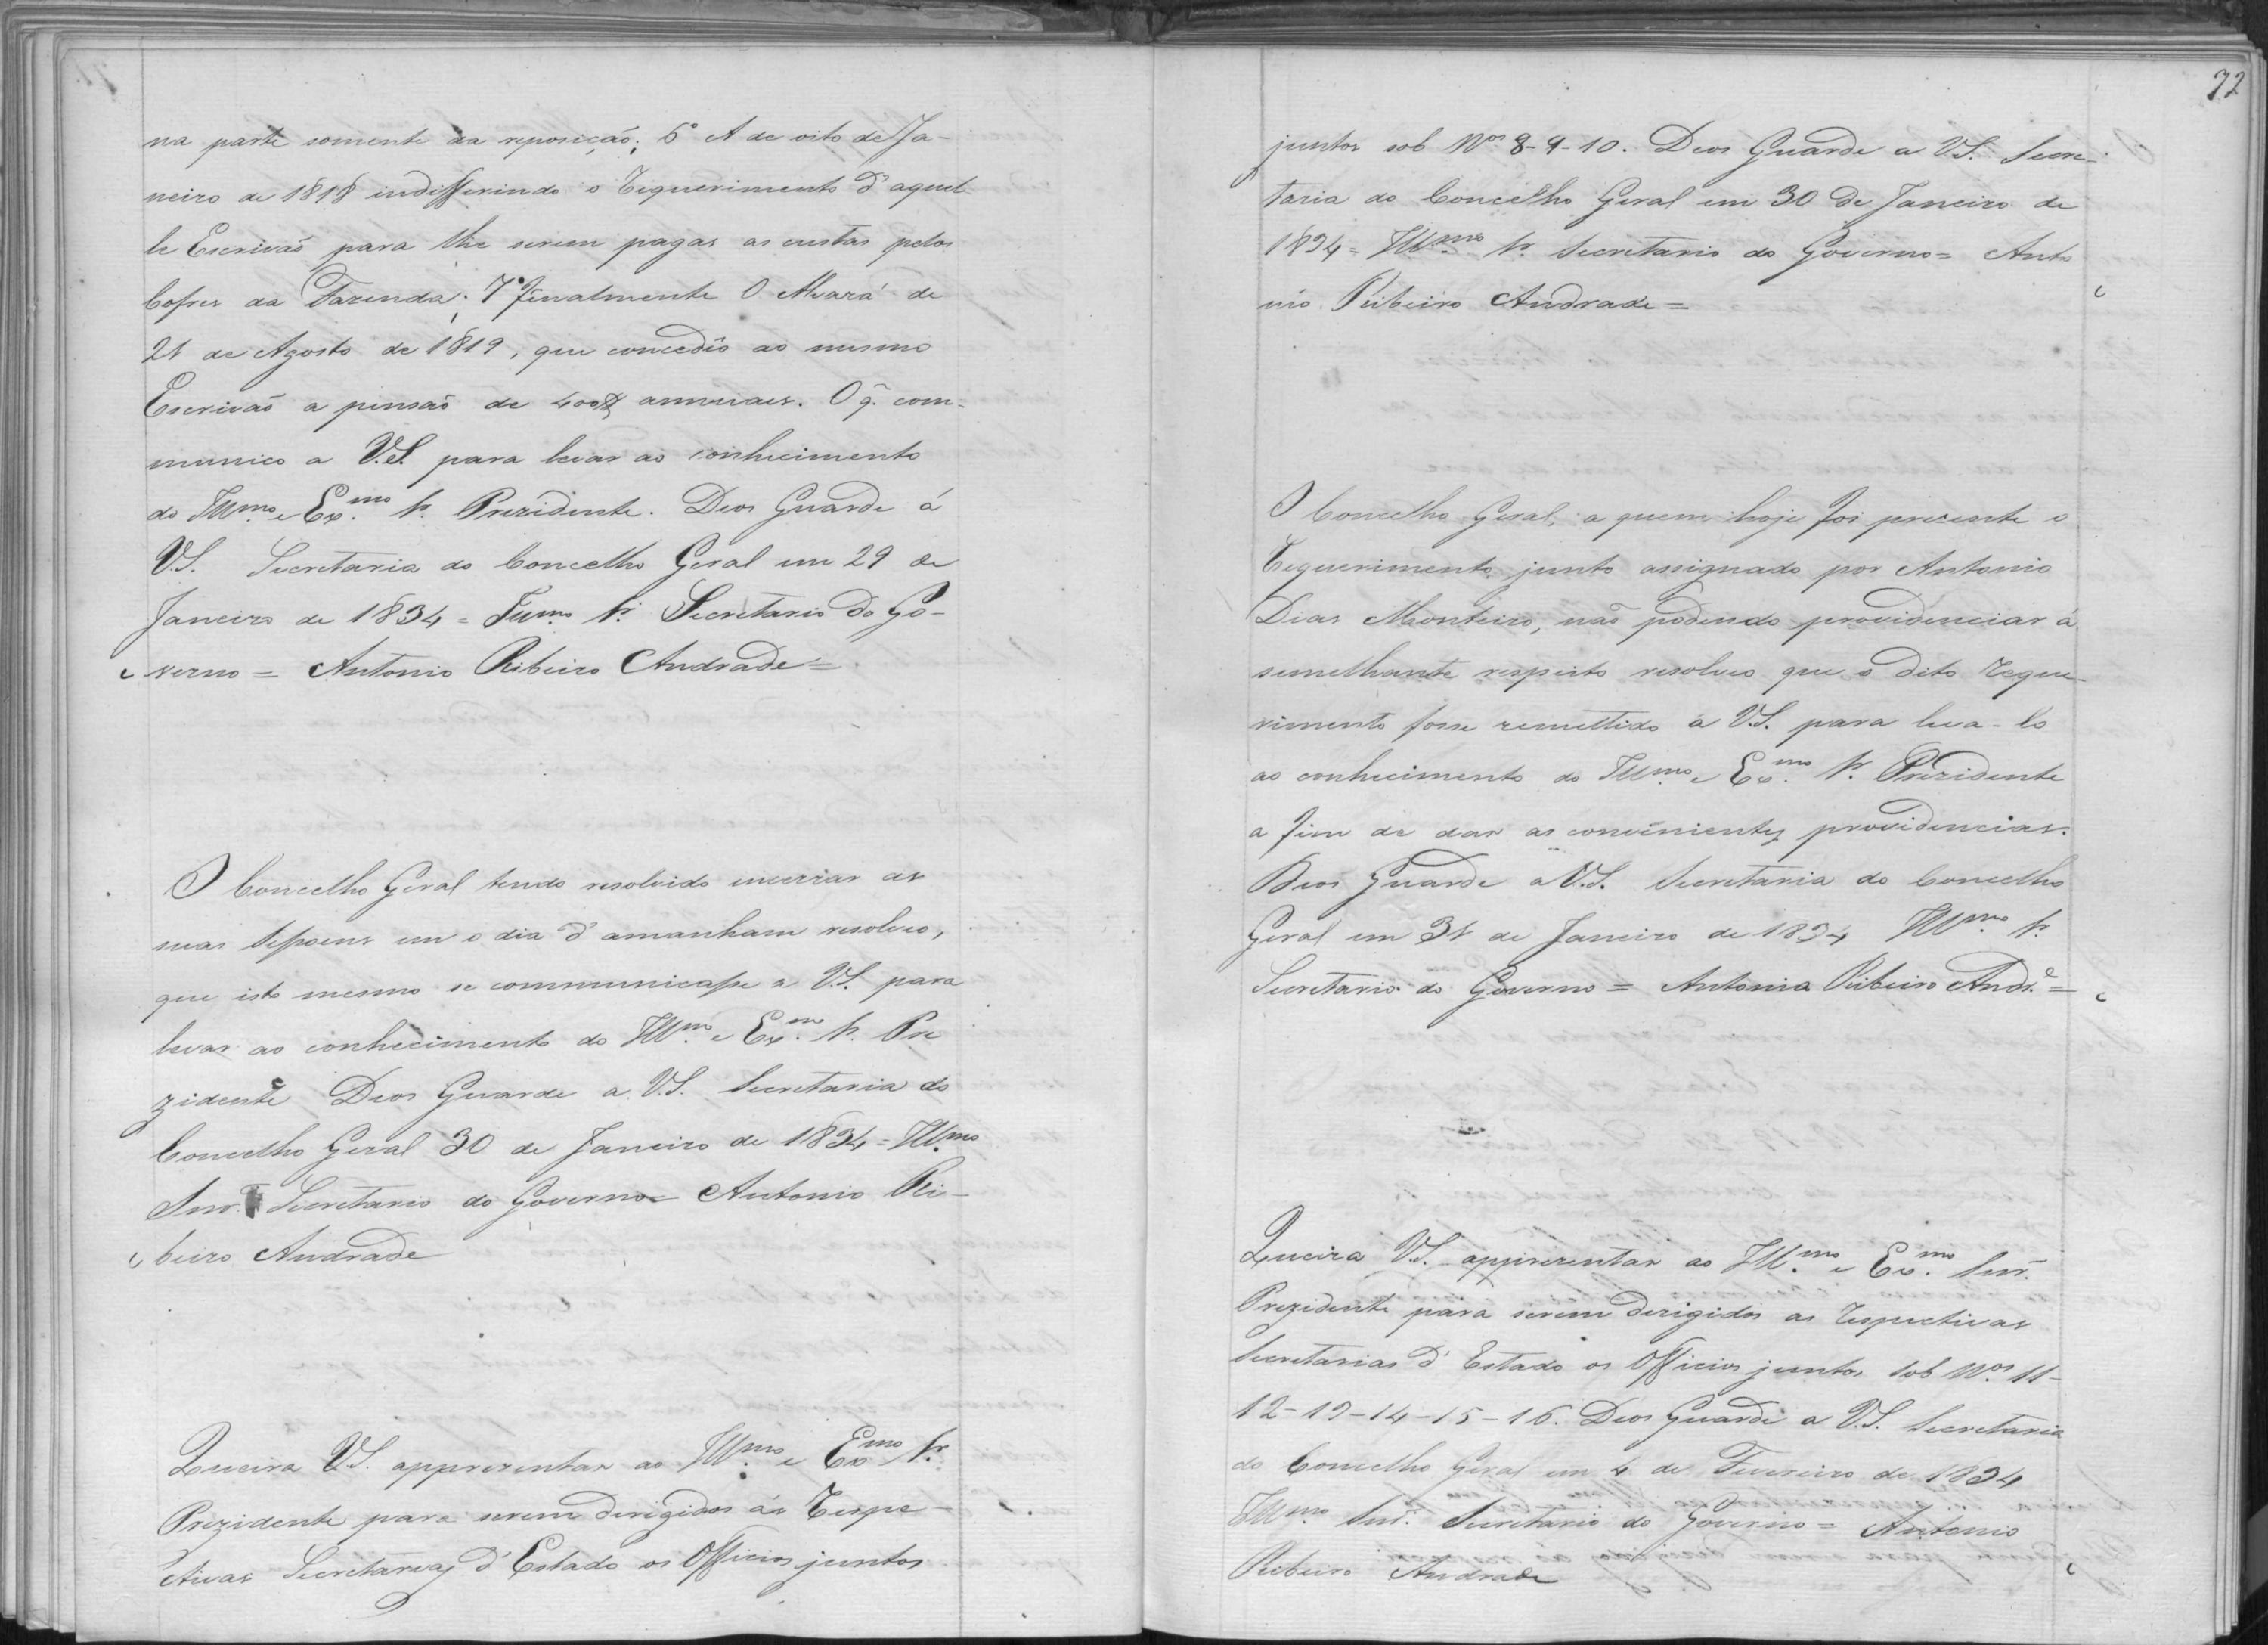 na parte somente da reposição; 6º A de oito de Ja-
neiro de 1818 indifferindo o Requerimento d'aquel-
le Escrivaõ para lhe serem pagas as custas pelos
Cofres da Fazenda; 7º finalmente O Alvará de
21 de Agosto de 1819, que concedio ao mesmo
Escrivaõ a pensaõ de 400$ annuaes. O q̃ com-
munico a V.S. para levar ao conhecimento
do Illmo. e Exmo. Sr. Prezidente. Deos Guarde á
V.S. Secretaria do Concelho Geral em 29 de
Janeiro de 1834 = Illmo. Sr. Secretario do Go-
verno = Antonio Ribeiro Andrade =
O Concelho Geral tendo resolvido encerrar as
suas Sessoens em o dia d'amanham resolveo,
que isto mesmo se communicasse a V.S. para
levar ao conhecimento do Illmo. e Exmo. Sr. Pre
zidente Deos Guarde a V.S. Secretaria do
Concelho Geral 30 de Janeiro de 1834 = Illmo.
Snr. Secretario do Governo = Antonio Ri-
beiro Andrade
Queira V.S. apprezentar ao Illmo. e Exmo. Sr.
Prezidente para serem dirigidos ás Respe-
ctivas Secretarias d'Estado os Officios juntos
72
juntos sob Nos. 8-9-10. Deos Guarde a V.S. Secre-
taria do Concelho Geral em 30 de Janeiro de
1834 = Illmo. Sr. Secretario do Governo = Anto
nio Ribeiro Andrade =
O Concelho Geral, a quem hoje foi prezente o
Requerimento junto assignado por Antonio
Dias Monteiro, não podendo providenciar á
semelhante respeito resolveo que o dito reque-
rimento fosse remettido a V.S. para leva-lo
ao conhecimento do Illmo. e Exmo. Sr. Prezidente
a fim de dar as convenientes providencias.
Deos Guarde a V.S. Secretaria do Concelho
Geral em 31 de Janeiro de 1834 Illmo. Sr.
Secretario do Governo = Antonio Ribeiro Andre. =
Queira V.S. apprezentar ao Illmo. e Exmo. Snr.
Prezidente para serem derigidos as Respectivas
Secretarias d'Estado os Officios juntos sob Nos. 11-
12-13-14-15-16. Deos Guarde a V.S. Secretaria
do Concelho Geral em 4 de Fevereiro de 1834
Illmo. Snr. Secretario do Governo = Antonio
Ribeiro Andrade